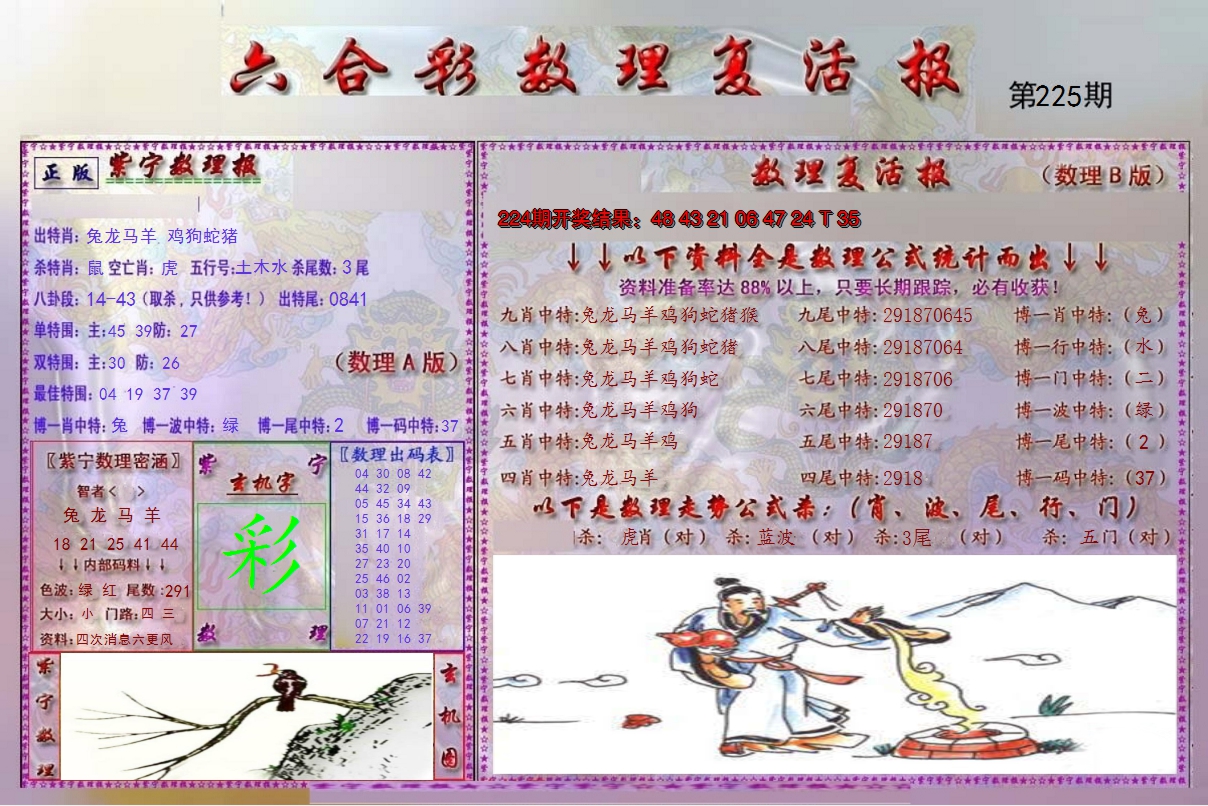 六合彩数理复活报
第225期
正版 紫宁数理报
出特肖：兔龙马羊 鸡狗蛇猪
杀特肖：鼠 空亡肖：虎 五行号:土木水 杀尾数：3尾
八卦段：14-43（取杀，只供参考！） 出特尾：0841
单特围：主:45 39防：27
双特围：主:30 防：26
（数理A版）
最佳特围：04 19 37 39
博一肖中特：兔 博一波中特：绿 博一尾中特：2 博一码中特:37
〖紫宁数理密涵〗
智者< >
兔 龙 马 羊
18 21 25 41 44
↓↓内部码料↓↓
色波：绿 红 尾数:291
大小：小 门路:四 三
资料:四次消息六更风
紫宁
玄机字
彩
数理
〖数理出码表〗
04 30 08 42
44 32 09
05 45 34 43
15 36 18 29
31 17 14
35 40 10
27 23 20
25 46 02
03 38 13
11 01 06 39
07 21 12
22 19 16 37
紫宁数理
玄机图
数理复活报
（数理B版）
224期开奖结果：48 43 21 06 47 24 T 35
↓↓以下资料全是数理公式统计而出↓↓
资料准备率达88%以上，只要长期跟踪，必有收获！
九肖中特:兔龙马羊鸡狗蛇猪猴 九尾中特：291870645 博一肖中特：（兔）
八肖中特:兔龙马羊鸡狗蛇猪 八尾中特：29187064 博一行中特：（水）
七肖中特:兔龙马羊鸡狗蛇 七尾中特：2918706 博一门中特：（二）
六肖中特:兔龙马羊鸡狗 六尾中特：291870 博一波中特：（绿）
五肖中特:兔龙马羊鸡 五尾中特：29187 博一尾中特：（2）
四肖中特:兔龙马羊 四尾中特：2918 博一码中特：（37）
以下是数理走势公式杀：（肖、波、尾、行、门）
杀： 虎肖（对） 杀：蓝波（对） 杀：3尾 （对） 杀： 五门（对）